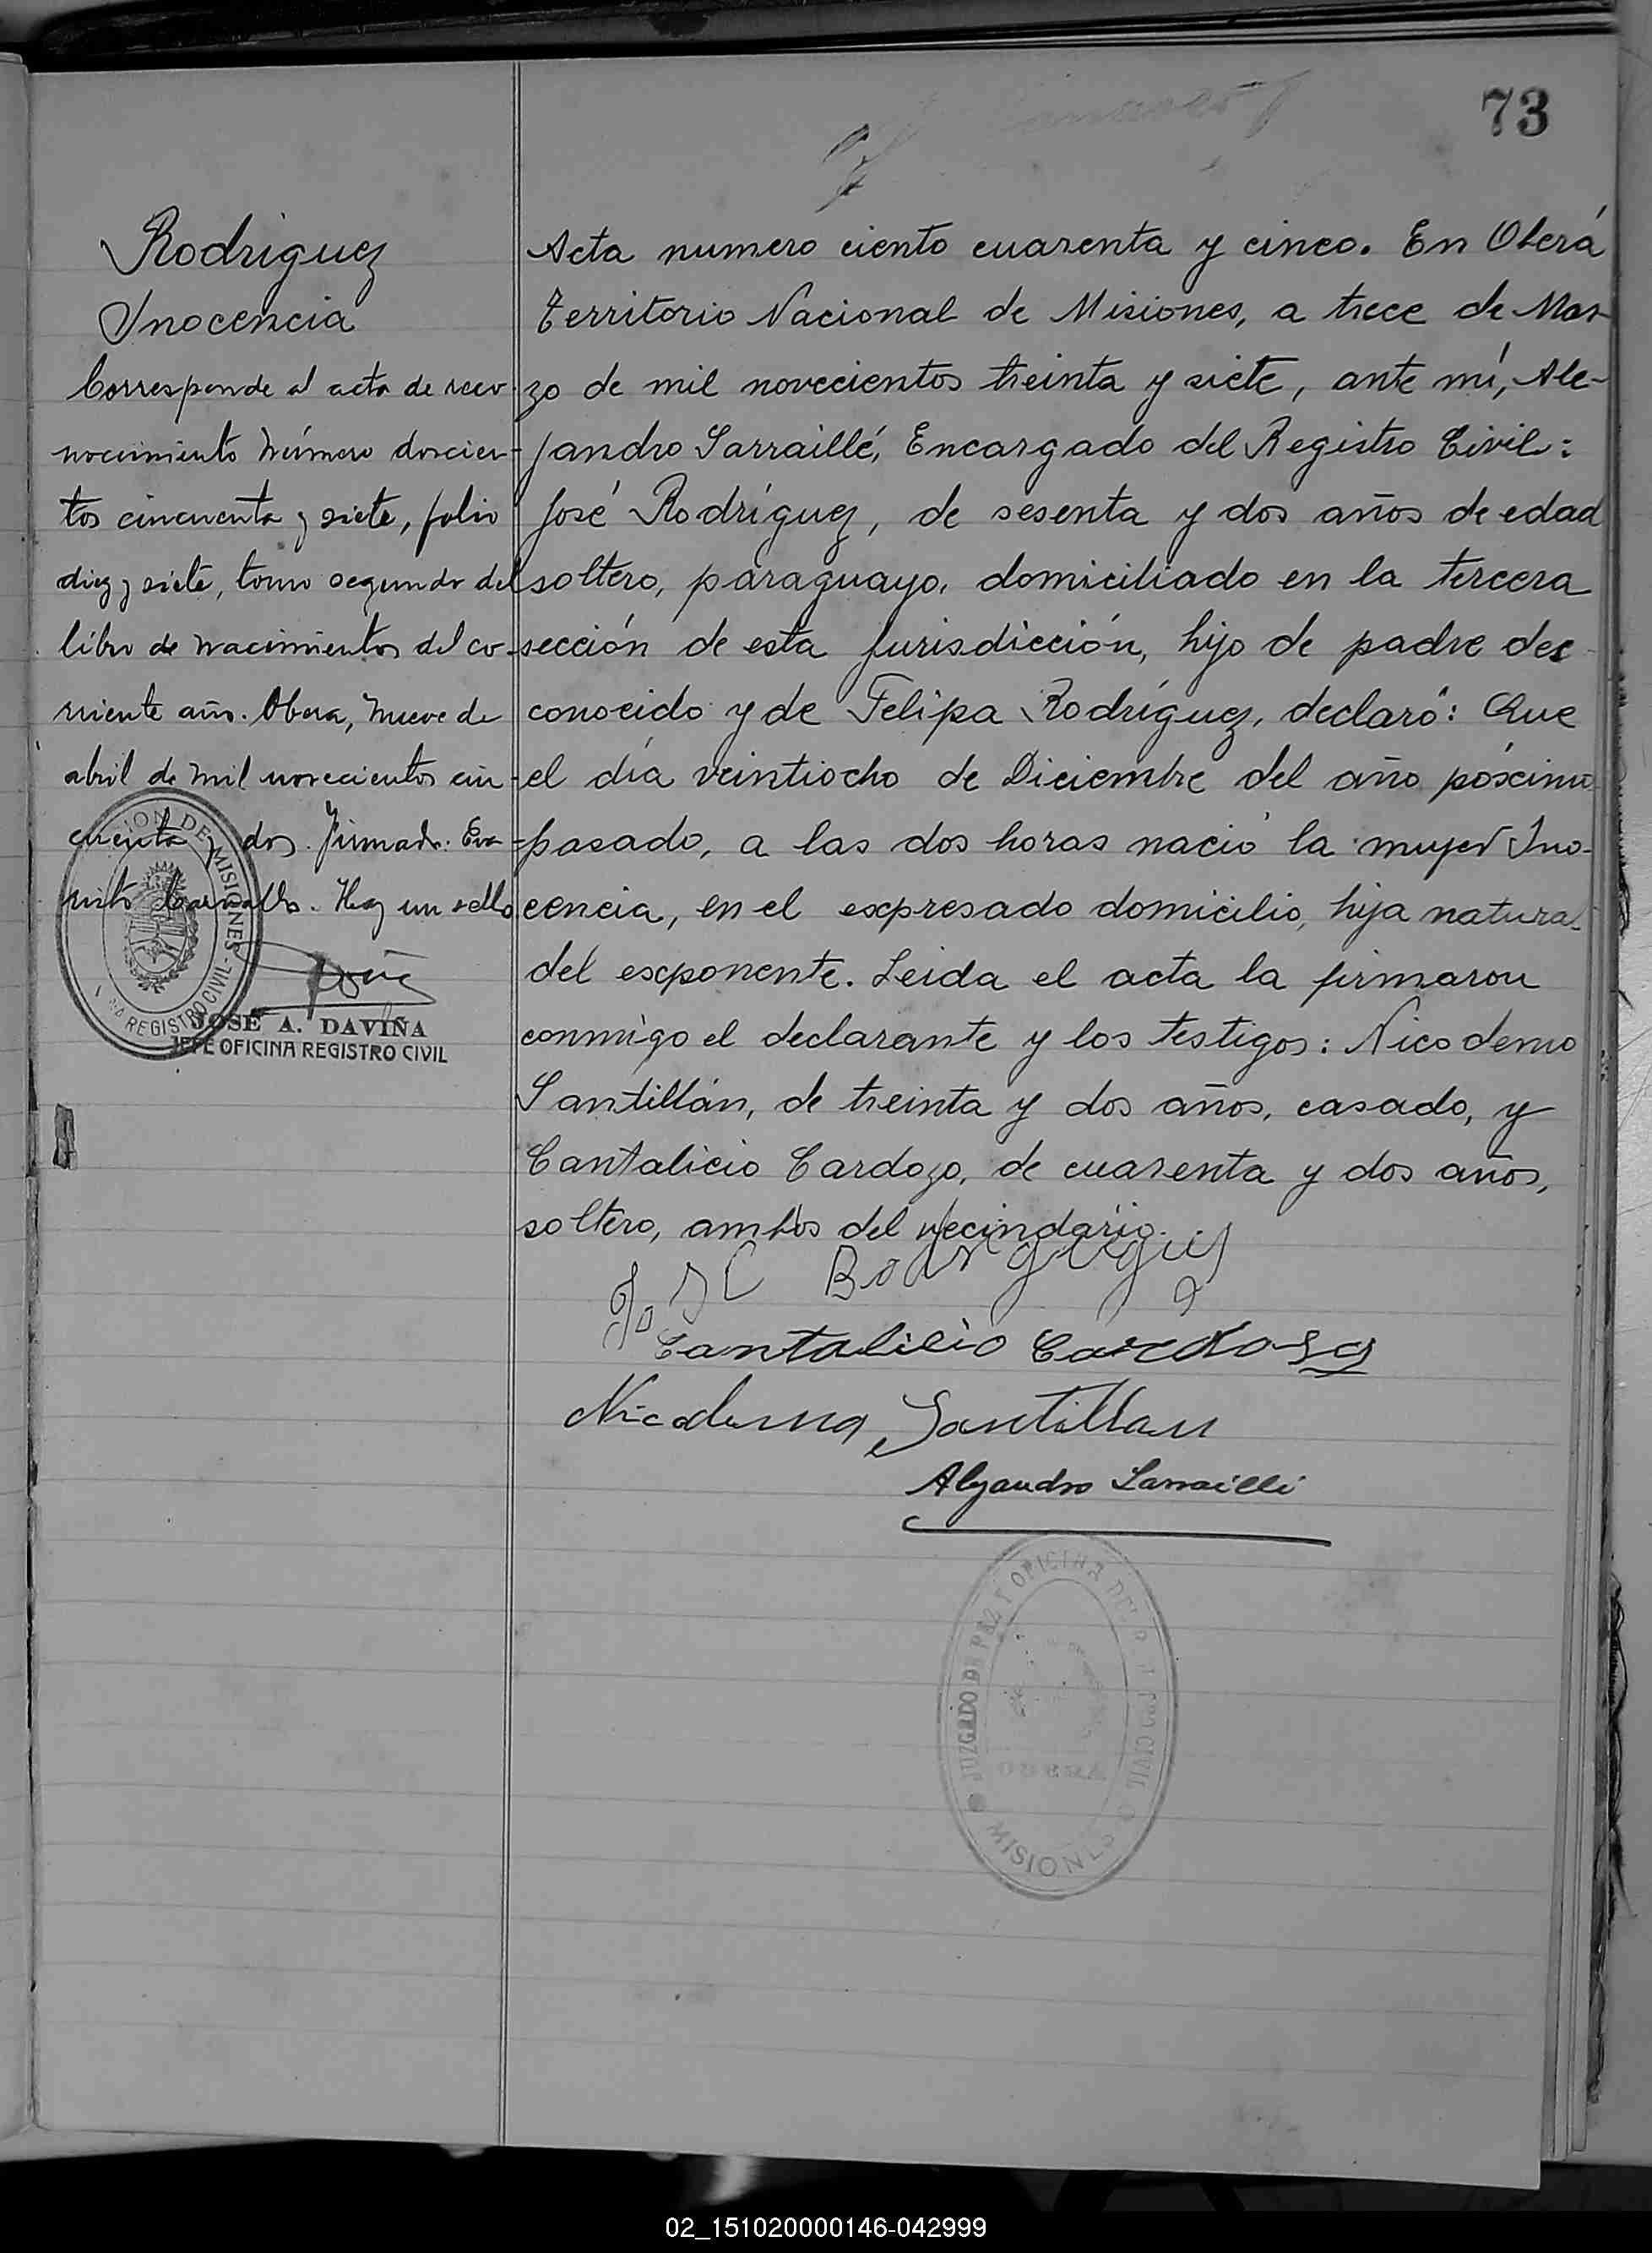 73
Rodriguez
Inocencia
Corresponde al acta de reco-
nocimiento número doscien-
tos cincuenta y siete, folio
diez y siete, tomo segundo del
libro de nacimientos del co-
rriente año. Obera, nueve de
abril de mil novecientos cin-
cuenta y dos. Firmado: Eva-
risto Carvallo. Hay un sello
JOSE A. DAVIÑA
JEFE OFICINA REGISTRO CIVIL
MISIONES
REGISTRO CIVIL
Acta numero ciento cuarenta y cinco. En Oberá
Territorio Nacional de Misiones, a trece de Mar-
zo de mil novecientos treinta y siete, ante mí, Ale-
jandro Sarraillé, Encargado del Registro Civil:
José Rodríguez, de sesenta y dos años de edad
soltero, paraguayo, domiciliado en la tercera
sección de esta jurisdicción, hijo de padre des-
conocido y de Felipa Rodríguez, declaró: Que
el día veintiocho de Diciembre del año póscimo
pasado, a las dos horas nació la mujer Ino-
cencia, en el escpresado domicilio, hija natural
del escponente. Leida el acta la firmaron
conmigo el declarante y los testigos: Nicodemo
Santillán, de treinta y dos años, casado, y
Cantalicio Cardozo, de cuarenta y dos años,
soltero, ambos del vecindario.
Cantalicio Cardoso
Nicodemo Santillan
Alejandro Sarraillé
JUZGADO DE PAZ Y OFICINA DEL CIVIL
OBERA
MISIONES
02_151020000146-042999